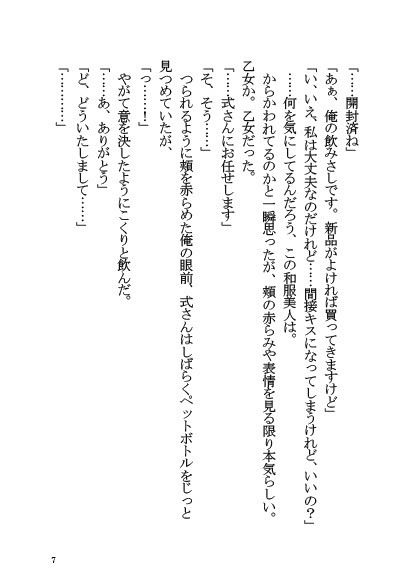 「……開封済ね」
「あぁ、俺の飲みさしです。新品がよければ買ってきますけど」
「い、いえ、私は大丈夫なのだけれど……間接キスになってしまうけれど、いいの？」
……何を気にしてるんだろう、この和服美人は。
からかわれてるのかと一瞬思ったが、頬の赤らみや表情を見る限り本気らしい。
乙女か。乙女だった。
「……式さんにお任せします」
「そ、そう……」
つられるように頬を赤らめた俺の眼前、式さんはしばらくペットボトルをじっと
見つめていたが、
「っ……！」
やがて意を決したようにこくりと飲んだ。
「……あ、ありがとう」
「ど、どういたしまして……」
「…………」
7